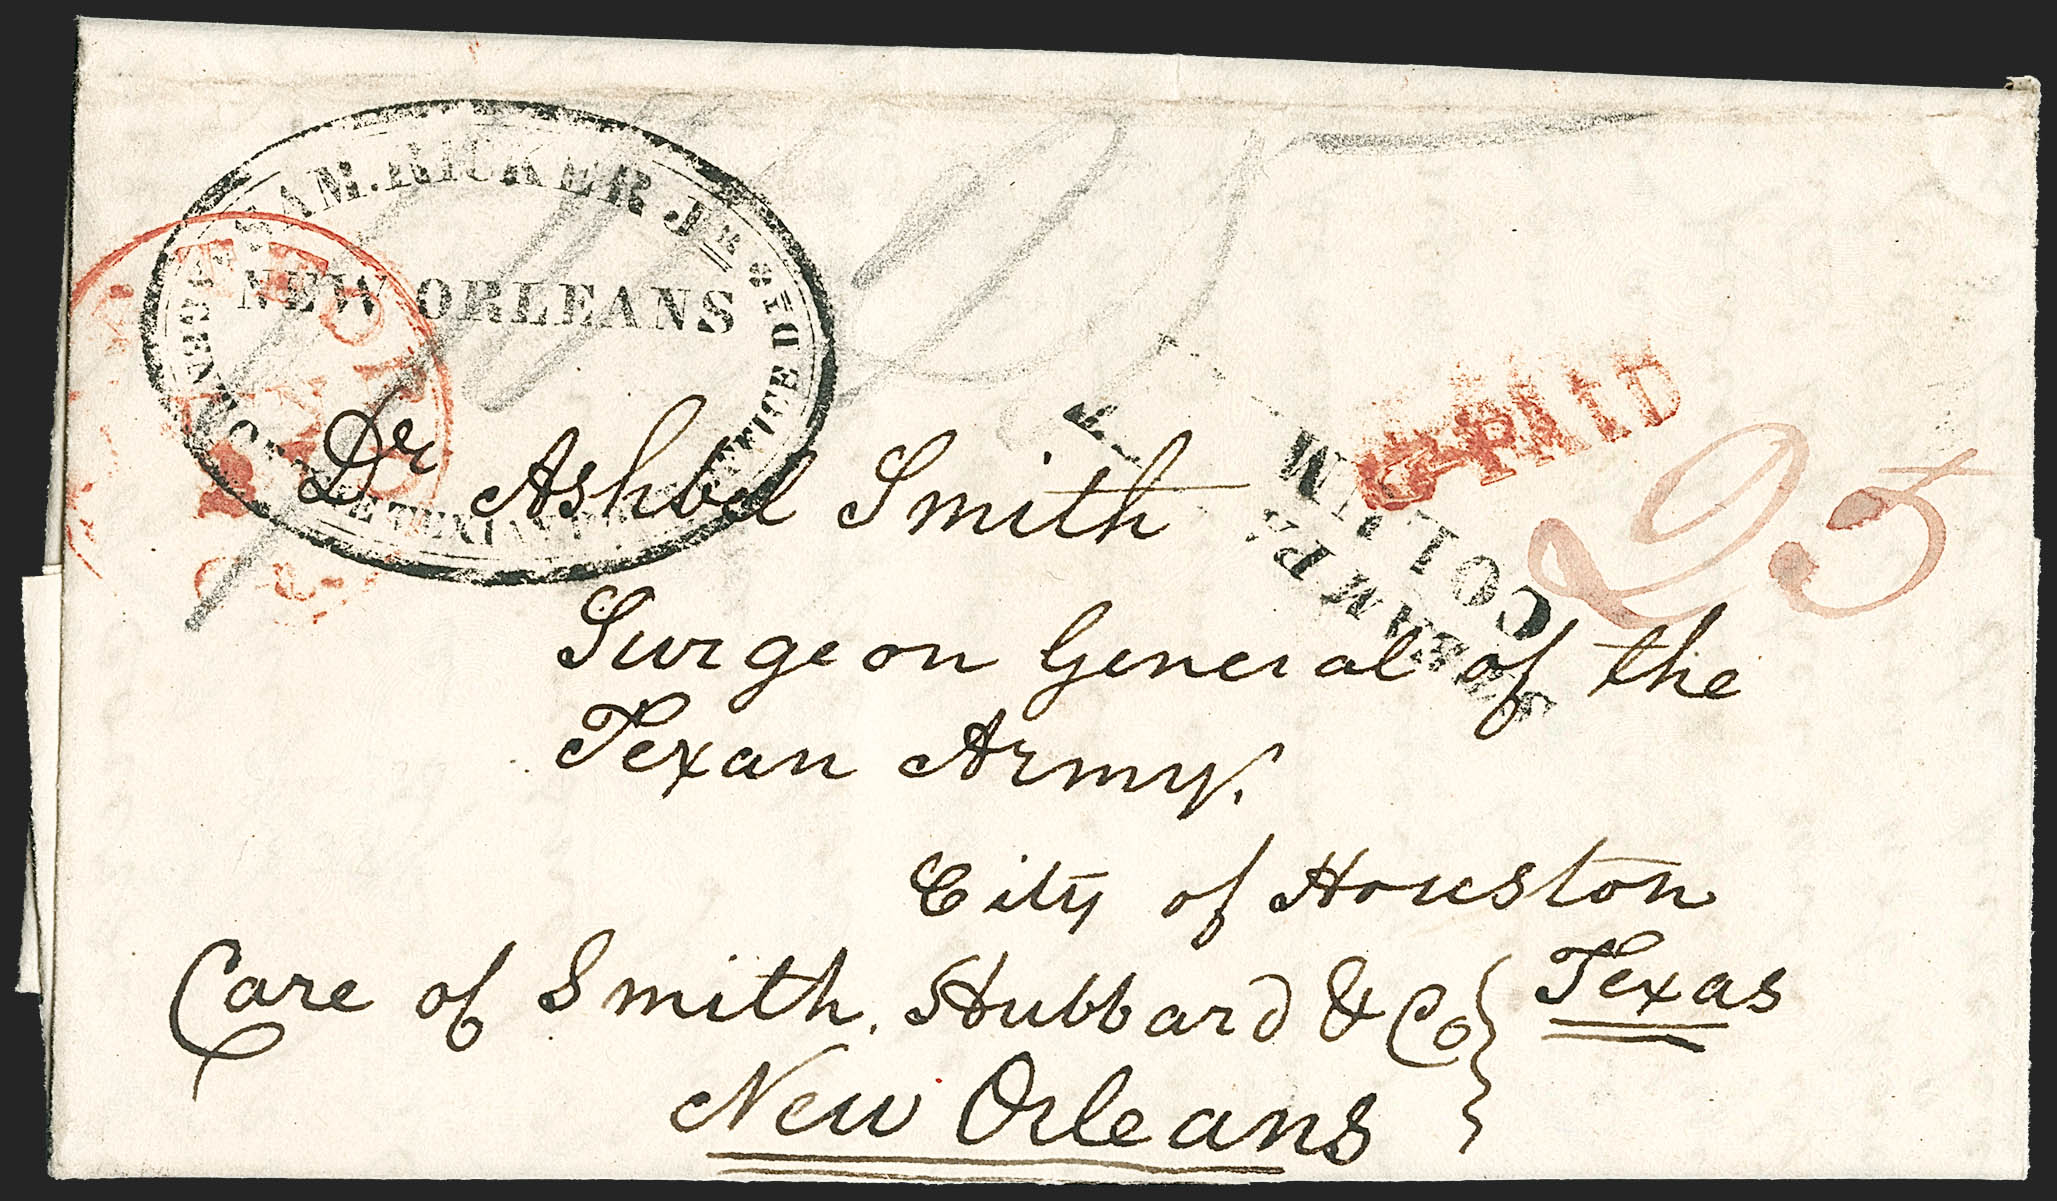 SAM. RICKER Jr
NEW ORLEANS
AGENT
OFFICE
PAID
25
Dr Ashbel Smith
Surgeon General of the
Texan Army.
City of Houston
Texas
Care of Smith, Hubbard & Co
New Orleans